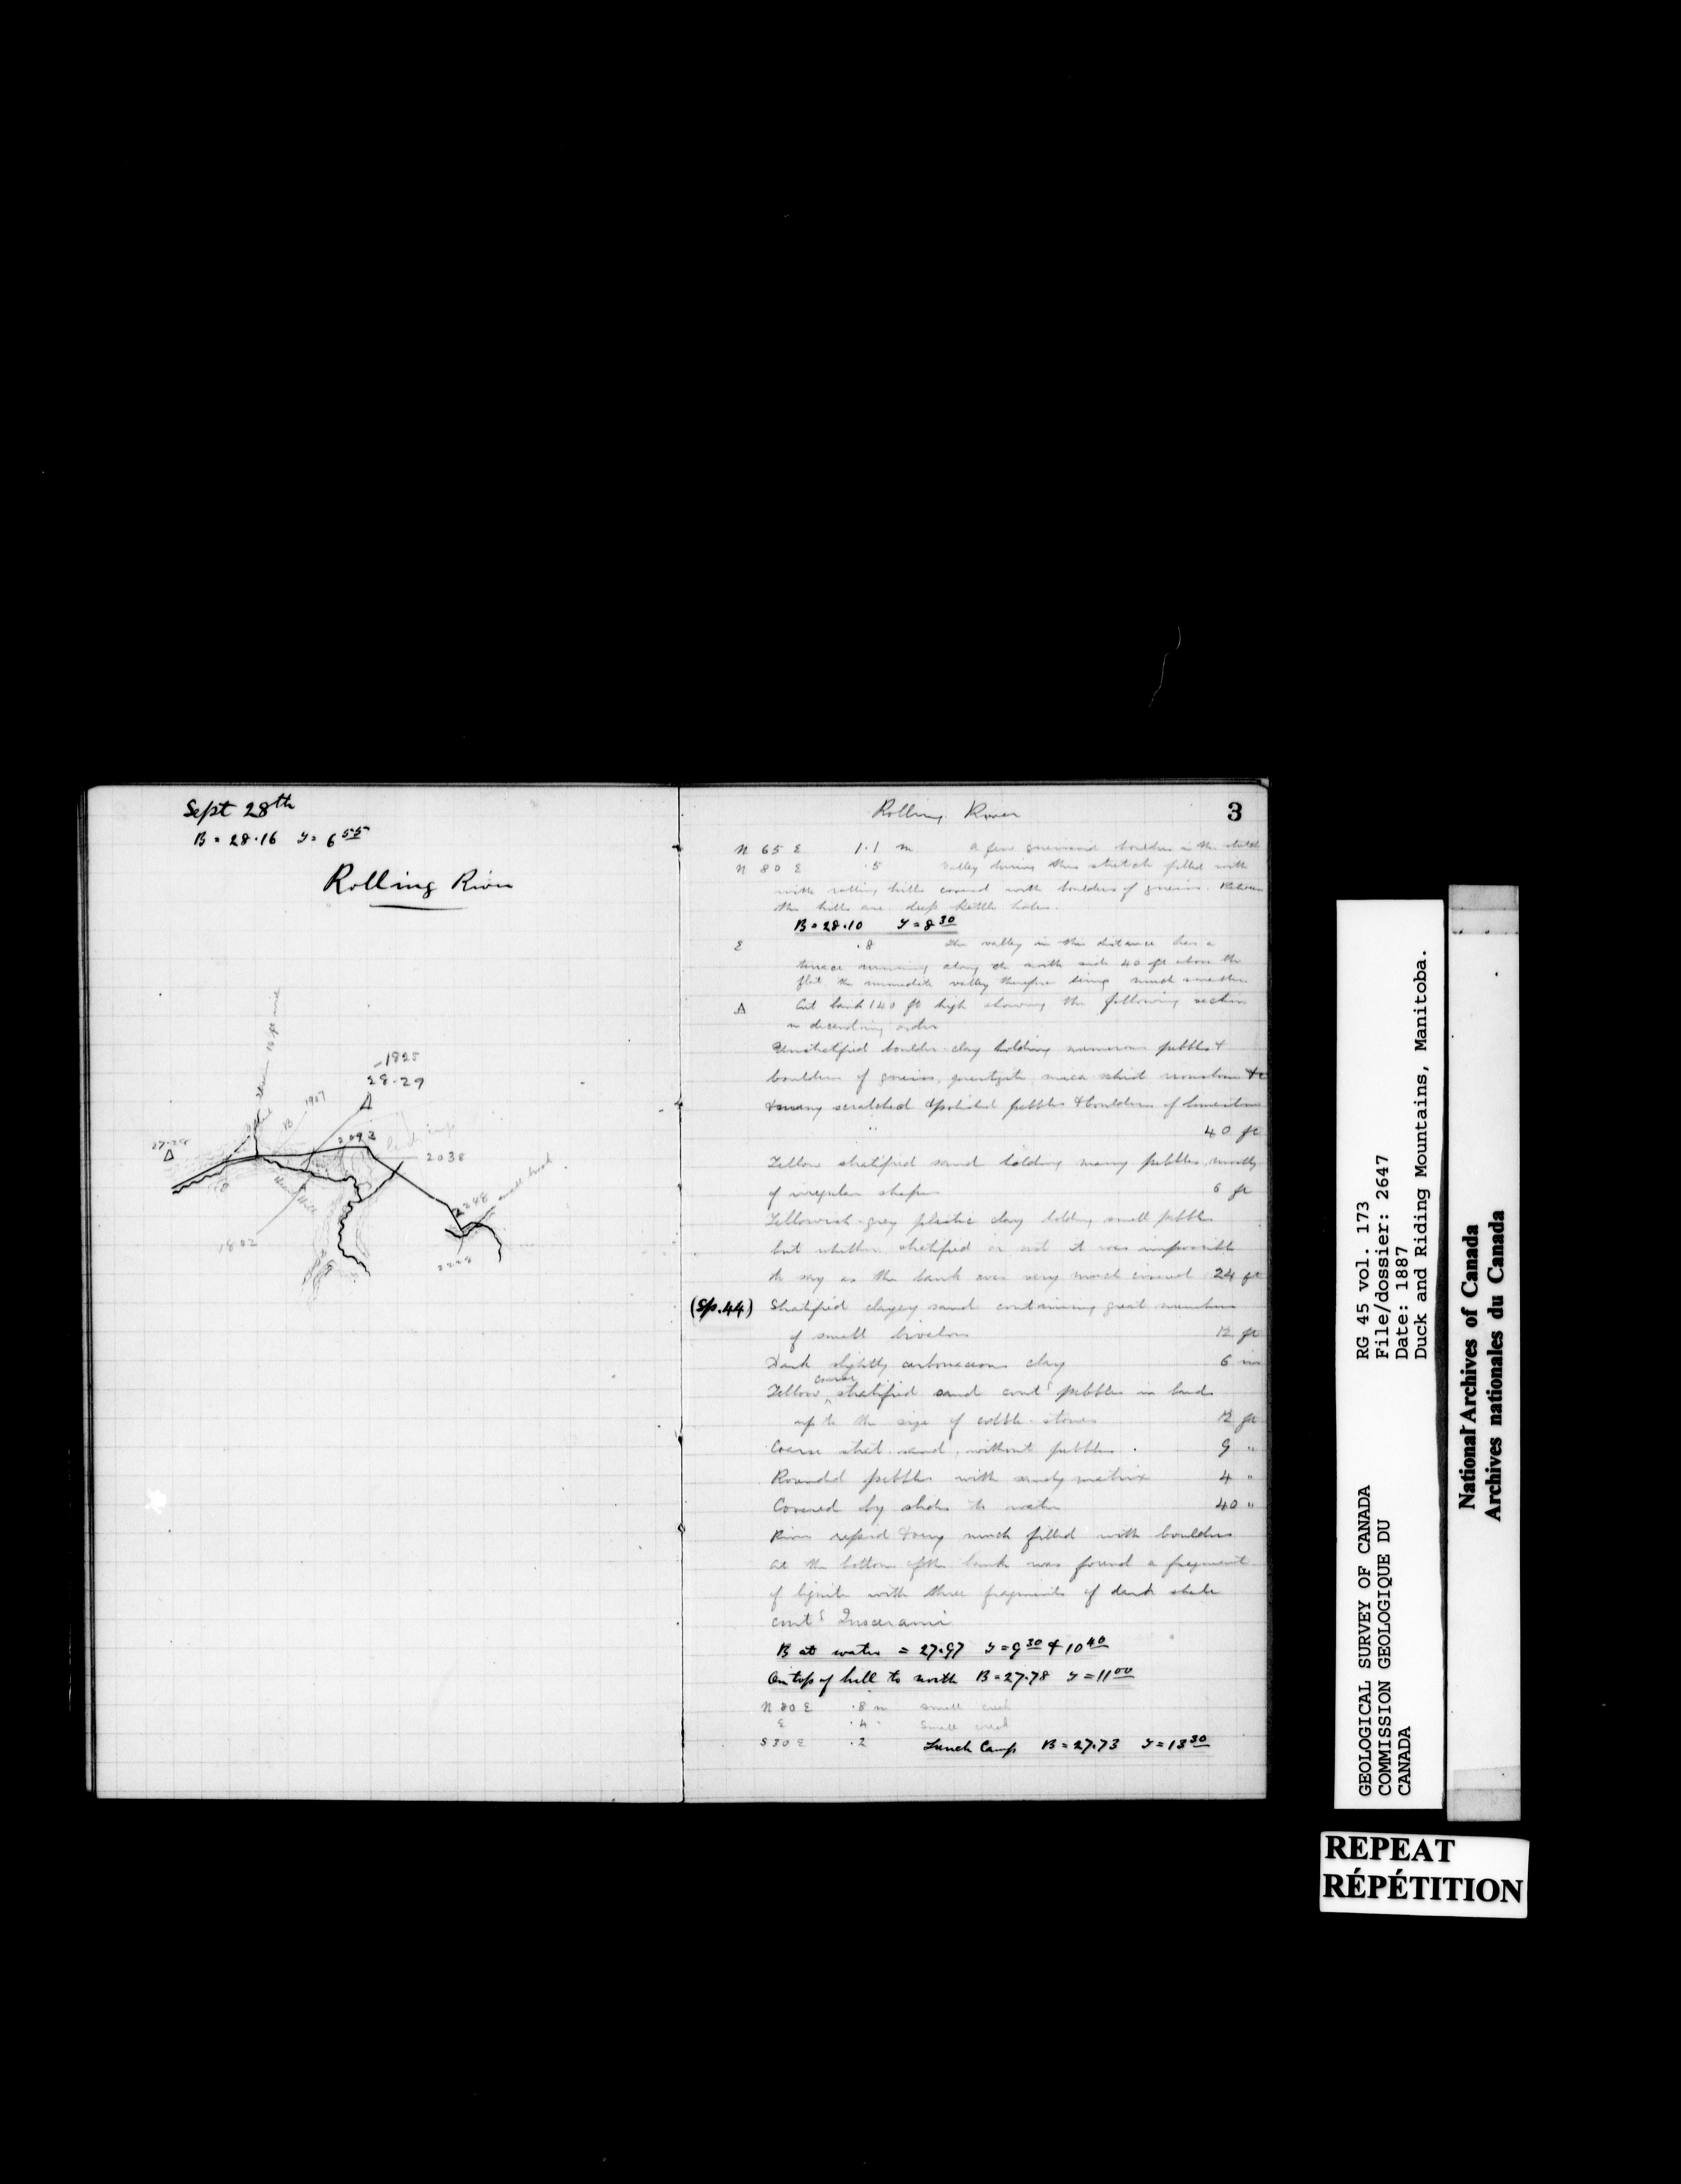 Sept 28th
B = 28.16 T = 6 55
Rolling River
-1825
28.29
1907
27.28
2092
2038
1802
2248
small brook
Rolling River
3
N 65 E 1.1 m a few gneissoid boulders in the
N 80 E .5 Valley during this stretch filled with
with rolling hills covered with boulders of gneiss. Between
the hills are deep kettle holes.
B = 28.10 T = 8 30
E .8 The valley in this distance has a
terrace running along the north side 40 ft above the
flat the immediate valley therefore being much smaller
Cut bank 140 ft high showing the following section
in descending order
Unstratified boulder-clay holding numerous pebbles &
boulders of gneiss, quartzite mica schist ironstone &c
& many scratched & polished pebbles & boulders of limestone
40 ft
Yellow stratified sand holding many pebbles, mostly
of irregular shape 6 ft
Yellowish-grey plastic clay holding small pebbles
but whether stratified or not it was impossible
to say as the bank was very much covered 24 ft
(Sp. 44) Stratified clayey sand containing great numbers
of small bivalves 12 ft
Dark slightly carbonaceous clay 6 ins
coarse
Yellow stratified sand cont'g pebbles in bands
up to the size of cobble-stones 12 ft
Coarse strat. sand, without pebbles. 9 "
Rounded pebbles with sandy matrix 4 "
Covered by slides to water 40 "
River rapid & very much filled with boulders
At the bottom of the bank was found a fragment
of lignite with three fragments of dark shale
cont'g Inocerami
B at water = 27.97 T = 9 30 & 10 40
On top of hill to north B = 27.78 T = 11 00
N 80 E .8 m small creek
E .4 " Small creek
S 30 E .2 Lunch Camp B = 27.73 T = 13 30
GEOLOGICAL SURVEY OF CANADA
COMMISSION GEOLOGIQUE DU
CANADA
RG 45 vol. 173
File/dossier: 2647
Date: 1887
Duck and Riding Mountains, Manitoba.
National Archives of Canada
Archives nationales du Canada
REPEAT
RÉPÉTITION